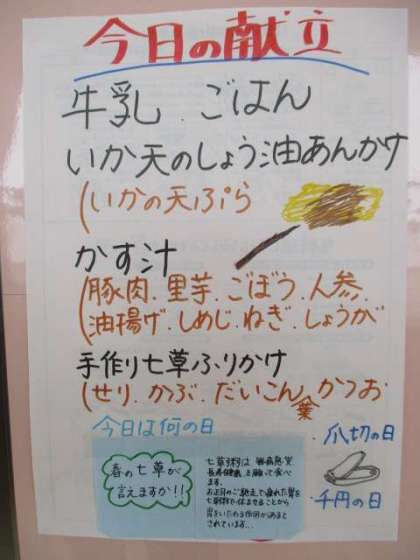 今日の献立
牛乳.ごはん
いか天のしょう油あんかけ
(いかの天ぷら
かす汁
(豚肉.里芋.ごぼう.人参.
油揚げ.しめじ.ねぎ.しょうが
手作り七草ふりかけ
(せり.かぶ.だいこん葉.かつお
今日は何の日
春の七草が
言えますか!!
七草粥は無病息災
長寿健康を願って食べ
ます。
お正月のご馳走で疲れた胃を
七草粥で休ませることから
胃をいたわる作用があると
されています…
爪切の日
千円の日